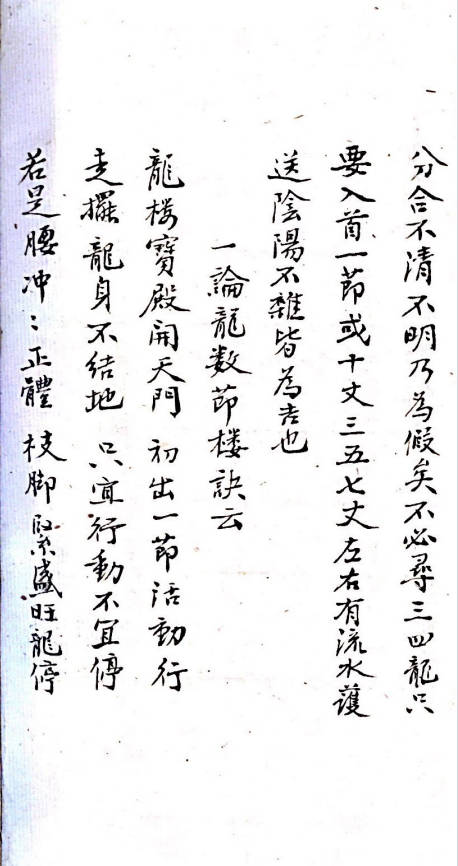 分合不清不明乃為假矣不必尋三四龍只
要入首一節或十丈三五七丈左右有流水護
送陰陽不雜皆為吉也
一論龍数節楼訣云
龍楼寶殿開天門 初出一節活動行
走擺龍身不結地 只宜行動不宜停
若是腰冲〻正體 枝脚緊盛旺龍停